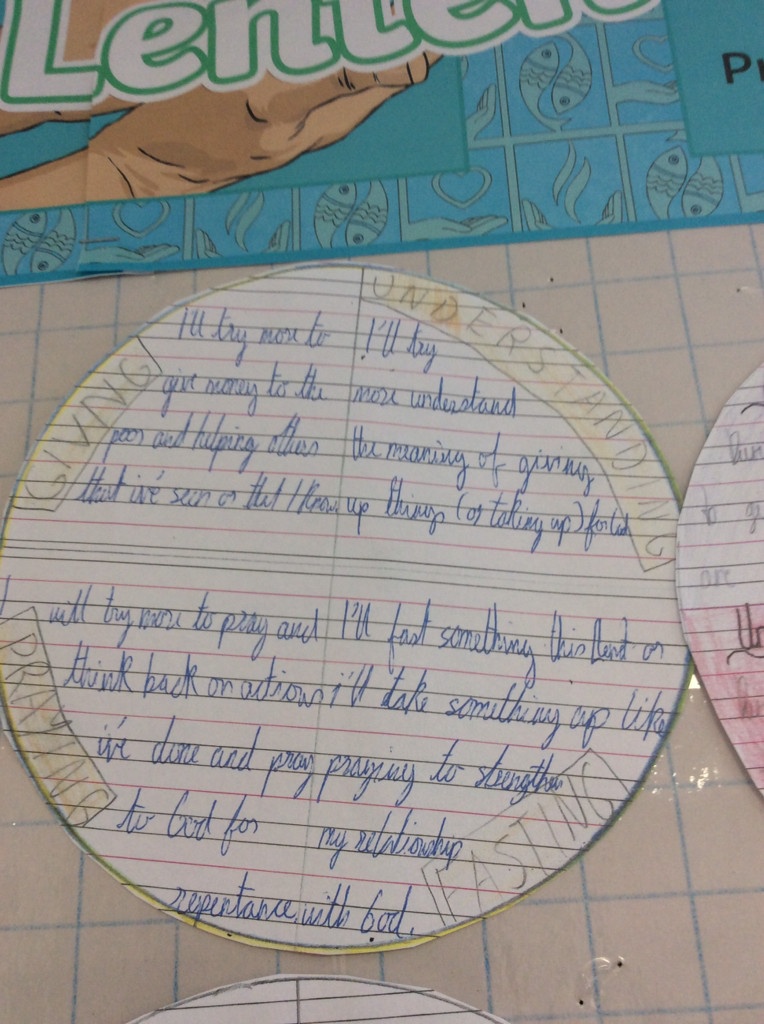 Lenten
Pr
GIVING
I'll try more to
give money to the
poor and helping others
that ive seen or that I know
UNDERSTANDING
I'll try
more understand
the meaning of giving
up things (or taking up) for God
PRAYING
I will try more to pray and
think back on actions
i've done and pray
to God for
repentance.
FASTING
I'll fast something this lent or
i'll take something up like
praying to strengthen
my relationship
with God.
to
are
Un